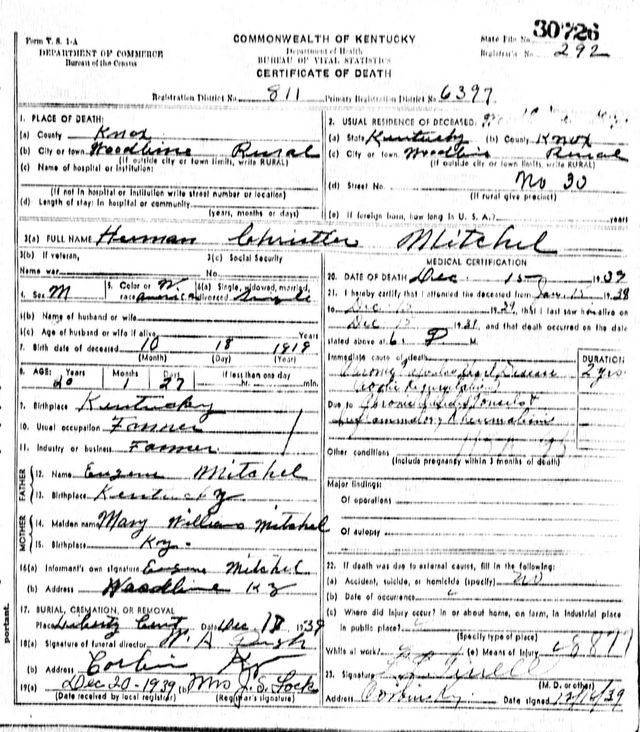 30726
Form V. S. 1-A
DEPARTMENT OF COMMERCE
Bureau of the Census
COMMONWEALTH OF KENTUCKY
Department of Health
BUREAU OF VITAL STATISTICS
CERTIFICATE OF DEATH
State File No.
Registrar's No. 292
Registration District No. 811 Primary Registration District No. 6397
1. PLACE OF DEATH:
(a) County Knox
(b) City or town Woodbine Rural
(If outside city or town limits, write RURAL)
(c) Name of hospital or institution:
(If not in hospital or institution write street number or location)
(d) Length of stay: In hospital or community
(years, months or days)
2. USUAL RESIDENCE OF DECEASED:
(a) State Kentucky (b) County Knox
(c) City or town Woodbine Rural
(If outside city or town limits, write RURAL)
(d) Street No. No 30
(If rural give precinct)
(e) If foreign born, how long in U. S. A.? years
3(a) FULL NAME Herman Mitchel
3(b) If veteran,
Name war
3(c) Social Security
No.
4. Sex M
5. Color or W.
race
6(a) Single, widowed, married,
divorced Single
6(b) Name of husband or wife
6(c) Age of husband or wife if alive Years
7. Birth date of deceased 10 18 1919
(Month) (Day) (Year)
8. AGE: Years Months Days If less than one day
20 1 27 hr. min.
9. Birthplace Kentucky
10. Usual occupation Farmer
11. Industry or business Farmer
FATHER
12. Name Eugene Mitchel
13. Birthplace Kentucky
MOTHER
14. Maiden name Mary Williams Mitchel
15. Birthplace Ky.
16(a) Informant's own signature Eugene Mitchel
(b) Address Woodbine Ky
17. BURIAL, CREMATION, OR REMOVAL
Place Liberty Date Dec 1939
18(a) Signature of funeral director
(b) Address Corbin Ky
19(a) Dec 20-1939 (b) Mrs J. S. Lock
(Date received by local registrar) (Registrar's signature)
MEDICAL CERTIFICATION
20. DATE OF DEATH Dec 15 1939
21. I hereby certify that I attended the deceased from 1938
to Dec 1939 that I last saw him alive on
Dec 1939, and that death occurred on the date
stated above at 6 P M.
Immediate cause of death DURATION
Chronic Heart Disease 2 yrs
Due to Chronic
Inflammatory Rheumatism
Other conditions
(Include pregnancy within 3 months of death)
Major findings:
Of operations
Of autopsy
22. If death was due to external causes, fill in the following:
(a) Accident, suicide, or homicide (specify) no
(b) Date of occurrence
(c) Where did injury occur? in or about home, on farm, in industrial place
in public place?
(Specify type of place)
While at work? (e) Means of Injury
23. Signature
(M. D. or other)
Address Corbin Ky. Date signed 12/16/39
portant.